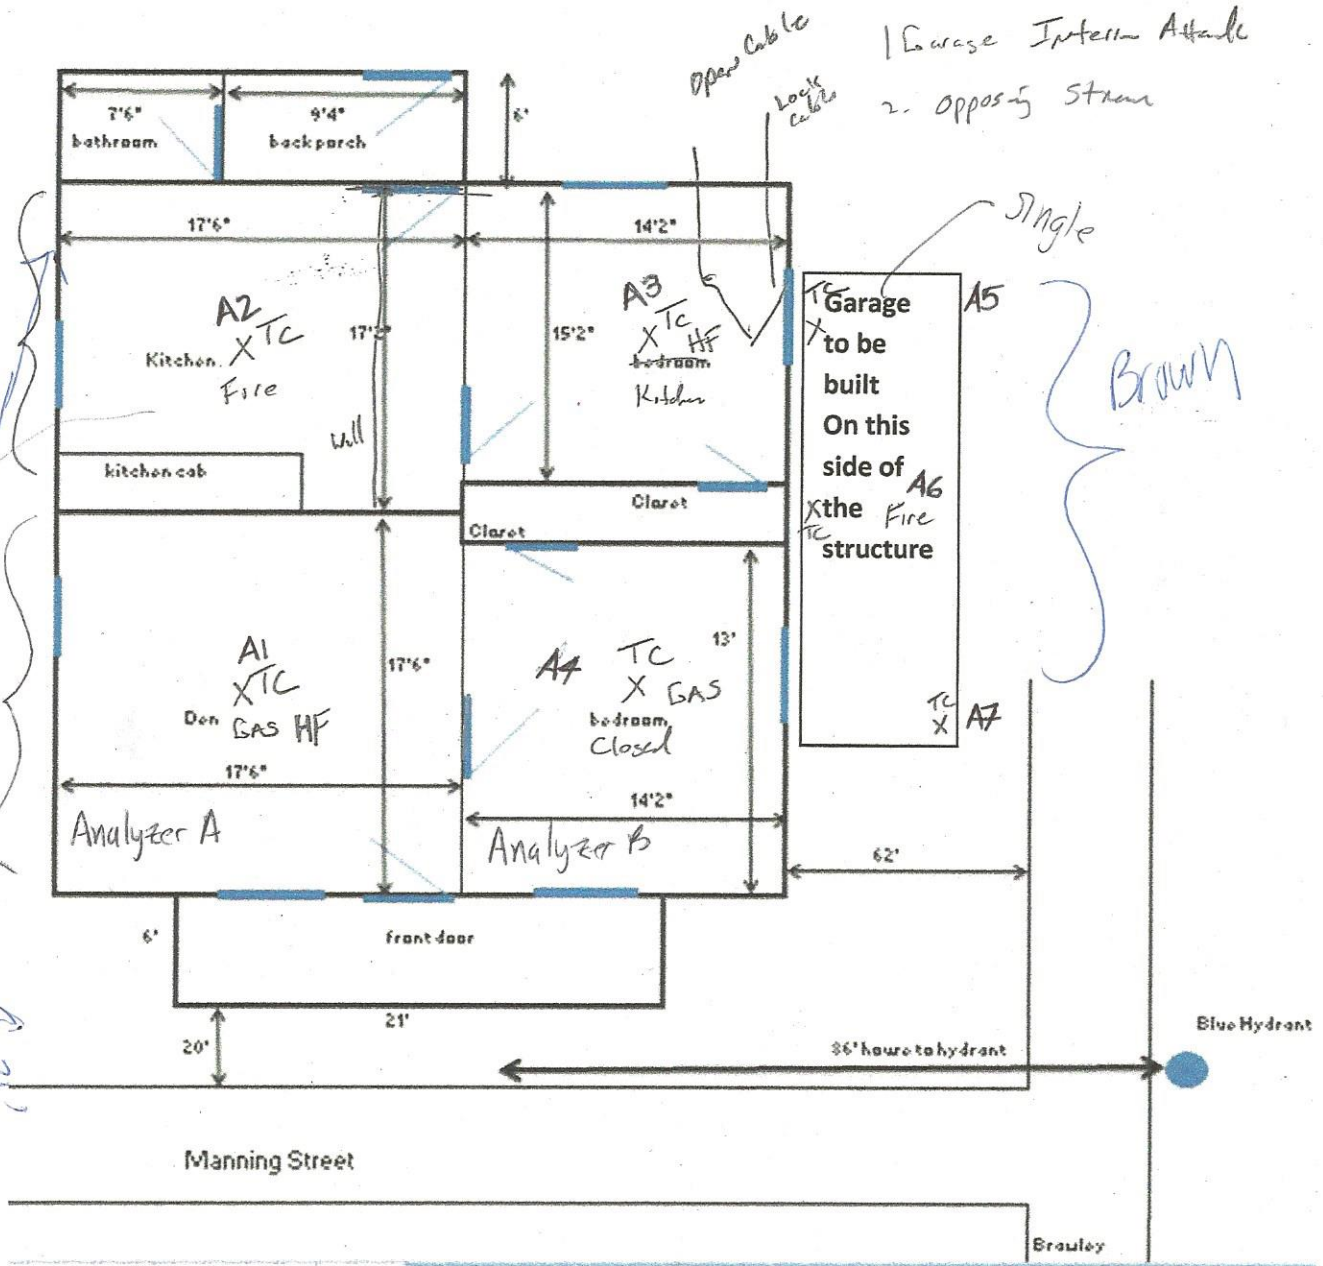 Open Cable
Lock Cable
1 Garage Interior Attack
2. Opposing Stream
7'6"
bathroom
9'4"
back porch
6'
17'6"
14'2"
Single
A2
X TC
Kitchen
Fire
17'2"
Wall
kitchen cab
A3
X TC
HF
bedroom
Kitchen
15'2"
Closet
Closet
TC
X
Garage
to be
built
On this
side of
the
structure
A5
A6
Fire
X
TC
TC
X A7
Brown
A1
X TC
Den
GAS HF
17'6"
17'6"
A4
TC
X GAS
bedroom
Closed
13'
14'2"
Analyzer A
Analyzer B
62'
6'
front door
21'
20'
86' house to hydrant
Blue Hydrant
Manning Street
Brawley